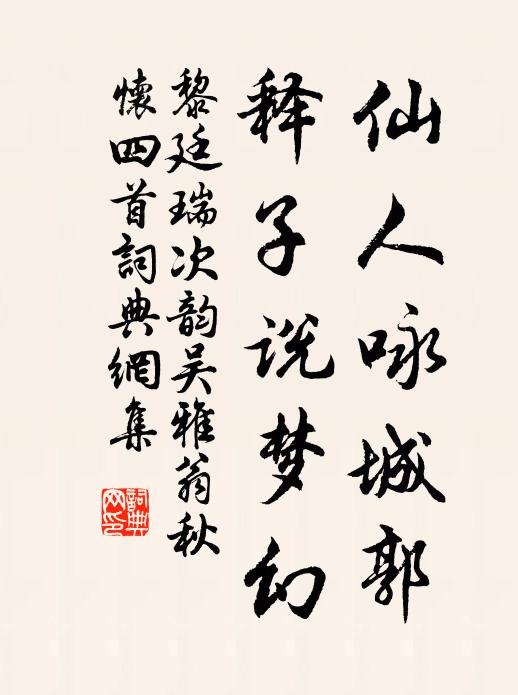 仙人咏城郭
释子说梦幻
黎廷瑞次韵吴雅翁秋
懷四首詞典網集
詞典
网印